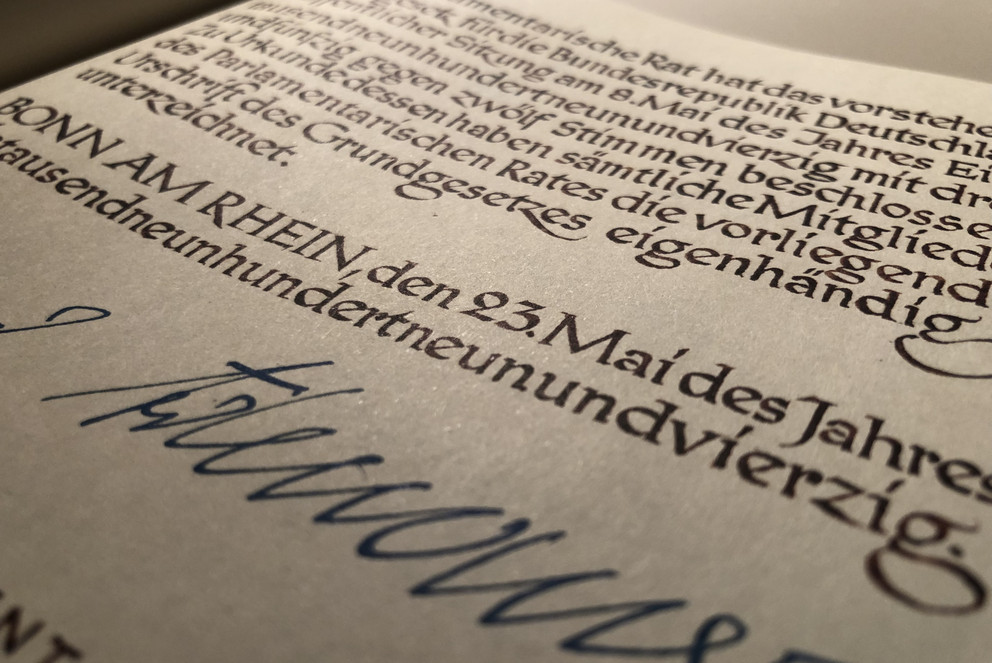 mentarische Rat hat das vorstehe
für die Bundesrepublik Deutschla
licher Sitzung am 8. Mai des Jahres Ei
tausendneunhundertneunundvierzig mit dre
undfünfzig gegen zwölf Stimmen beschlosse
Zu Urkunde dessen haben sämtliche Mitgliede
des Parlamentarischen Rates die vorliegend
Urschrift des Grundgesetzes eigenhändig
unterzeichnet.
BONN AM RHEIN, den 23. Mai des Jahres
tausendneunhundertneunundvierzig.
NT